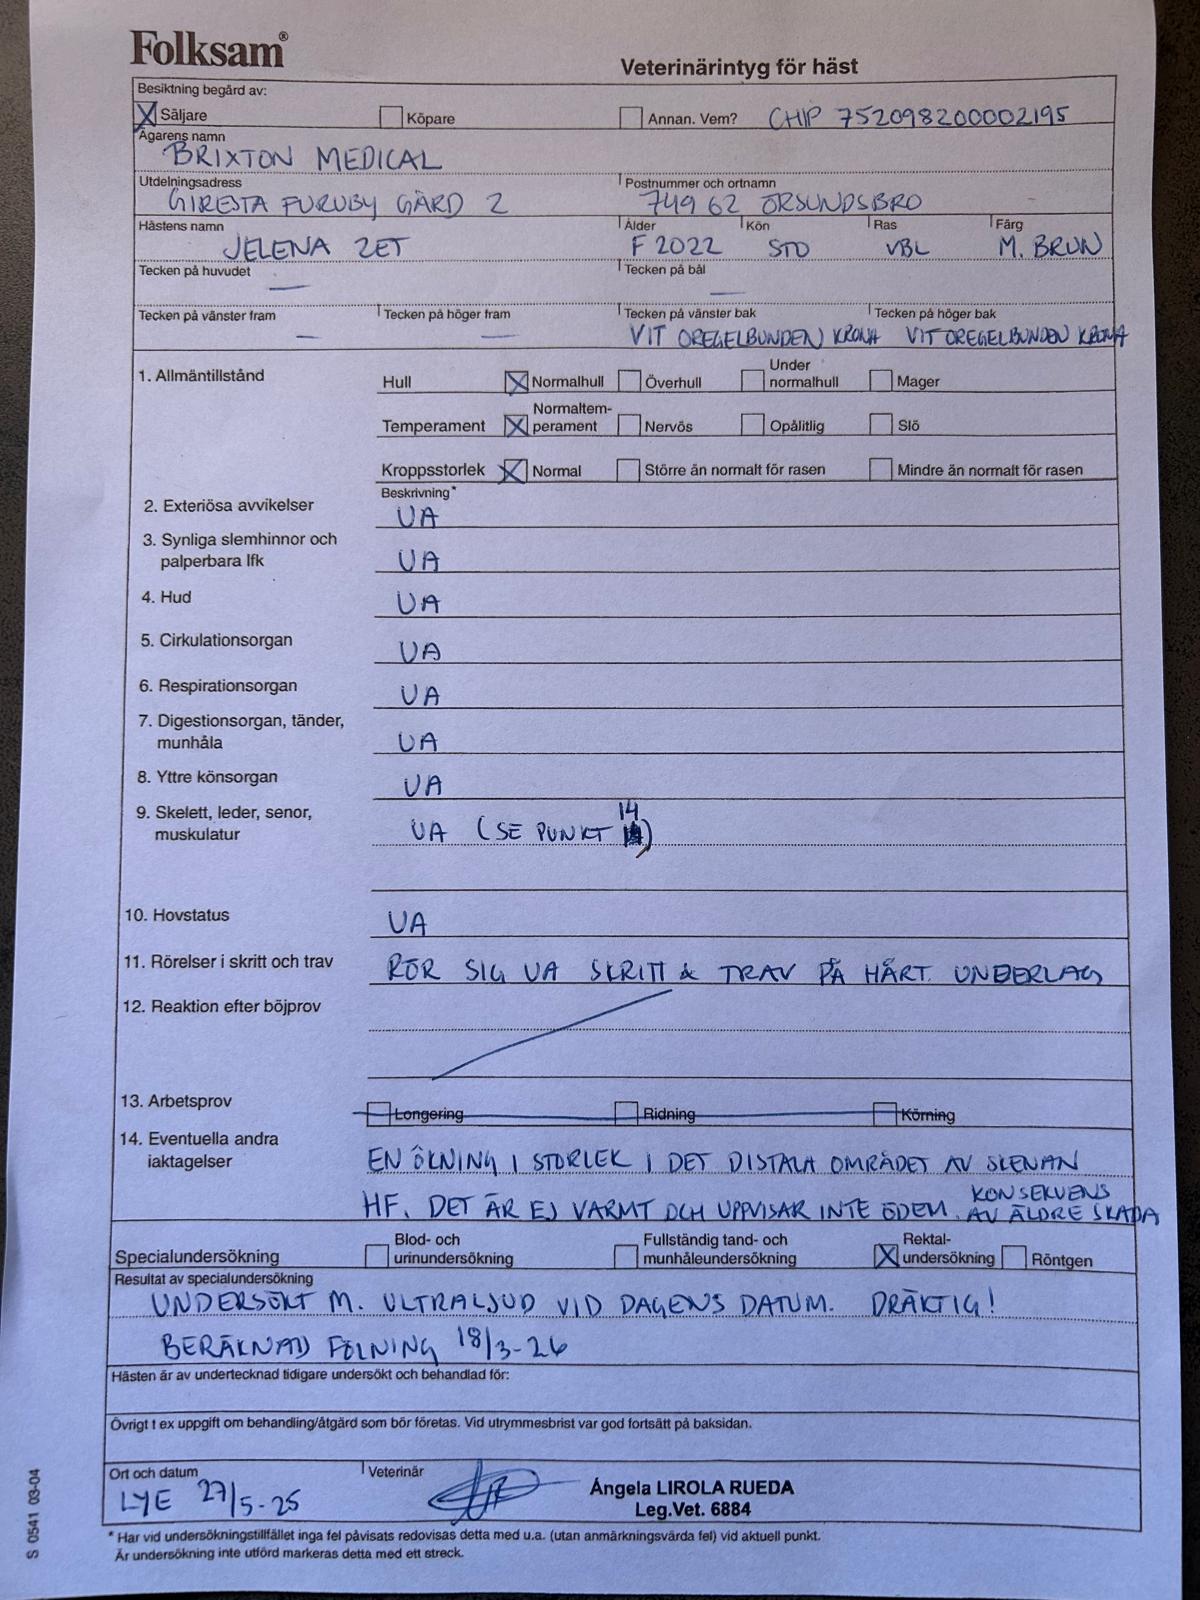 Folksam®
Veterinärintyg för häst
Besiktning begärd av:
X Säljare Köpare Annan. Vem? CHIP 752098200002195
Ägarens namn
BRIXTON MEDICAL
Utdelningsadress Postnummer och ortnamn
GIRESTA FURUBY GÅRD 2 749 62 ÖRSUNDSBRO
Hästens namn Ålder Kön Ras Färg
JELENA ZET F 2022 STO VBL M. BRUN
Tecken på huvudet Tecken på bål
— —
Tecken på vänster fram Tecken på höger fram Tecken på vänster bak Tecken på höger bak
— — VIT OREGELBUNDEN KRONA VIT OREGELBUNDEN KRONA
1. Allmäntillstånd
Hull X Normalhull Överhull Under normalhull Mager
Temperament X Normaltem-perament Nervös Opålitlig Slö
Kroppsstorlek X Normal Större än normalt för rasen Mindre än normalt för rasen
Beskrivning*
2. Exteriösa avvikelser UA
3. Synliga slemhinnor och
palperbara lfk UA
4. Hud UA
5. Cirkulationsorgan UA
6. Respirationsorgan UA
7. Digestionsorgan, tänder,
munhåla UA
8. Yttre könsorgan UA
9. Skelett, leder, senor,
muskulatur UA (SE PUNKT 14)
10. Hovstatus UA
11. Rörelser i skritt och trav RÖR SIG UA SKRITT & TRAV PÅ HÅRT UNDERLAG
12. Reaktion efter böjprov
13. Arbetsprov Longering Ridning Körning
14. Eventuella andra
iaktagelser EN ÖKNING I STORLEK I DET DISTALA OMRÅDET AV SKENAN
HF. DET ÄR EJ VARMT OCH UPPVISAR INTE ÖDEM. KONSEKVENS AV ÄLDRE SKADA
Specialundersökning Blod- och urinundersökning Fullständig tand- och munhåleundersökning X Rektal-undersökning Röntgen
Resultat av specialundersökning
UNDERSÖKT M. ULTRALJUD VID DAGENS DATUM. DRÄKTIG!
BERÄKNAD FÖLNING 18/3-26
Hästen är av undertecknad tidigare undersökt och behandlad för:
Övrigt t ex uppgift om behandling/åtgärd som bör företas. Vid utrymmesbrist var god fortsätt på baksidan.
Ort och datum Veterinär
LYE 27/5-25
Ángela LIROLA RUEDA
Leg.Vet. 6884
* Har vid undersökningstillfället inga fel påvisats redovisas detta med u.a. (utan anmärkningsvärda fel) vid aktuell punkt.
Är undersökning inte utförd markeras detta med ett streck.
S 0541 03-04